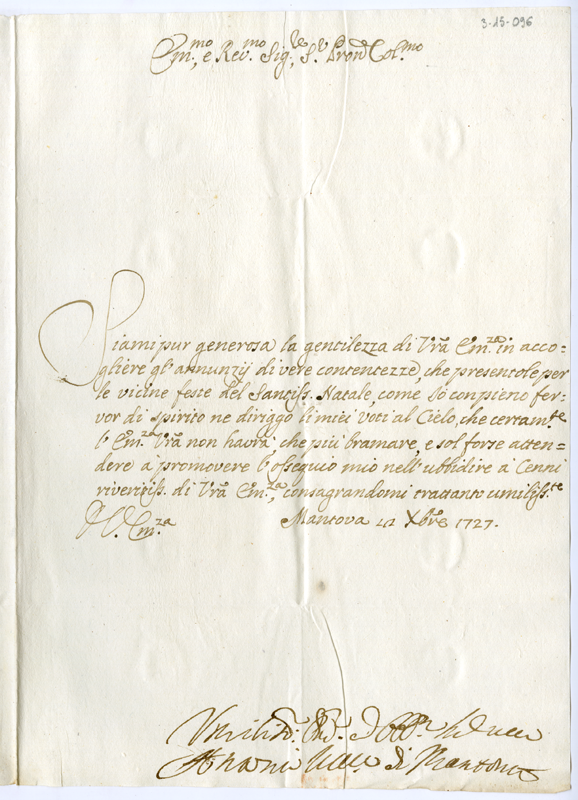 3-15-096
Em.mo, e Rev.mo Sig.re, S.r Pron Col.mo
Siami pur generosa la gentilezza di Vrã Em.za in acco=
gliere gl'annunzij di vere contentezze, che presentole per
le vicine feste del Santiss. Natale, come Io con pieno fer=
vor di spirito ne diriggo li miei voti al Cielo, che certam.te
l'Em.za Vrã non havrà che più bramare, e sol forze atten=
dere à promovere l'osseguio mio nell'ubbidire à Cenni
riveritiss. di Vrã Em.za, consagrandomi trattanto umiliss.te
Di V. Em.za Mantova 22 Xbre 1727.
di Mantova